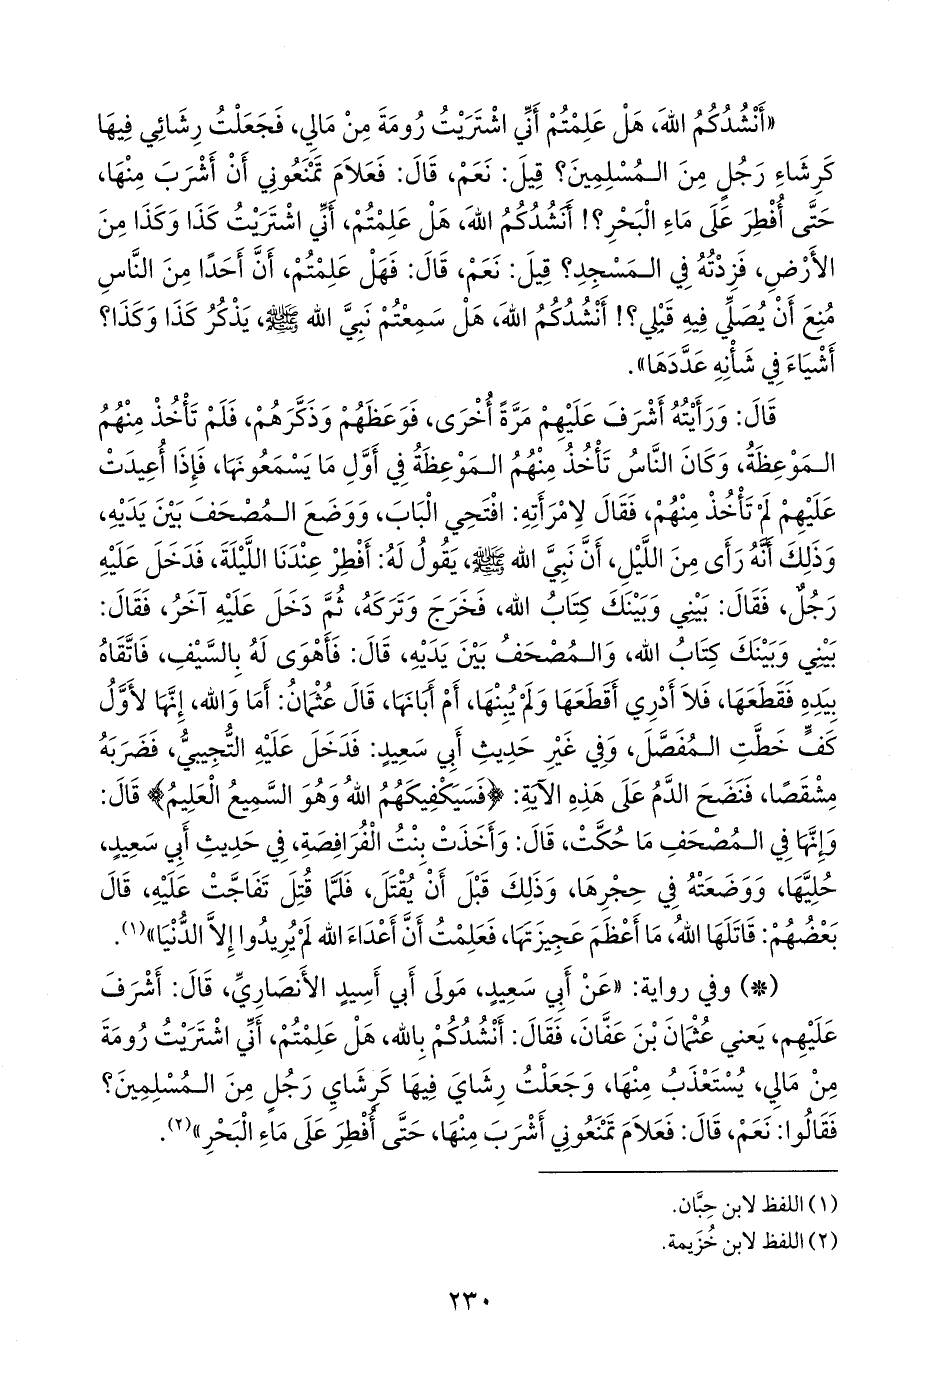 «أَنْشُدُكُمُ اللهَ، هَلْ عَلِمْتُمْ أَنِّي اشْتَرَيْتُ رُومَةَ مِنْ مَالِي، فَجَعَلْتُ رِشَائِي فِيهَا
كَرِشَاءِ رَجُلٍ مِنَ الـمُسْلِمِينَ؟ قِيلَ: نَعَمْ، قَالَ: فَعَلاَمَ تَمْنَعُونِي أَنْ أَشْرَبَ مِنْهَا،
حَتَّى أُفْطِرَ عَلَى مَاءِ الْبَحْرِ؟! أَنْشُدُكُمُ اللهَ، هَلْ عَلِمْتُمْ، أَنِّي اشْتَرَيْتُ كَذَا وَكَذَا مِنَ
الأَرْضِ، فَزِدْتُهُ فِي الـمَسْجِدِ؟ قِيلَ: نَعَمْ، قَالَ: فَهَلْ عَلِمْتُمْ، أَنَّ أَحَدًا مِنَ النَّاسِ
مُنِعَ أَنْ يُصَلِّيَ فِيهِ قَبْلِي؟! أَنْشُدُكُمُ اللهَ، هَلْ سَمِعْتُمْ نَبِيَّ اللهِ ﷺ، يَذْكُرُ كَذَا وَكَذَا؟
أَشْيَاءَ فِي شَأْنِهِ عَدَّدَهَا».
قَالَ: وَرَأَيْتُهُ أَشْرَفَ عَلَيْهِمْ مَرَّةً أُخْرَى، فَوَعَظَهُمْ وَذَكَّرَهُمْ، فَلَمْ تَأْخُذْ مِنْهُمُ
الـمَوْعِظَةُ، وَكَانَ النَّاسُ تَأْخُذُ مِنْهُمُ الـمَوْعِظَةُ فِي أَوَّلِ مَا يَسْمَعُونَهَا، فَإِذَا أُعِيدَتْ
عَلَيْهِمْ لَمْ تَأْخُذْ مِنْهُمْ، فَقَالَ لاِمْرَأَتِهِ: افْتَحِي الْبَابَ، وَوَضَعَ الـمُصْحَفَ بَيْنَ يَدَيْهِ،
وَذَلِكَ أَنَّهُ رَأَى مِنَ اللَّيْلِ، أَنَّ نَبِيَّ اللهِ ﷺ، يَقُولُ لَهُ: أَفْطِرْ عِنْدَنَا اللَّيْلَةَ، فَدَخَلَ عَلَيْهِ
رَجُلٌ، فَقَالَ: بَيْنِي وَبَيْنَكَ كِتَابُ اللهِ، فَخَرَجَ وَتَرَكَهُ، ثُمَّ دَخَلَ عَلَيْهِ آخَرُ، فَقَالَ:
بَيْنِي وَبَيْنَكَ كِتَابُ اللهِ، وَالـمُصْحَفُ بَيْنَ يَدَيْهِ، قَالَ: فَأَهْوَى لَهُ بِالسَّيْفِ، فَاتَّقَاهُ
بِيَدِهِ فَقَطَعَهَا، فَلاَ أَدْرِي أَقَطَعَهَا وَلَمْ يُبِنْهَا، أَمْ أَبَانَهَا، قَالَ عُثْمَانُ: أَمَا وَاللهِ، إِنَّهَا لأَوَّلُ
كَفٍّ خَطَّتِ الـمُفَصَّلَ، وَفِي غَيْرِ حَدِيثِ أَبِي سَعِيدٍ: فَدَخَلَ عَلَيْهِ التُّجِيبِيُّ، فَضَرَبَهُ
مِشْقَصًا، فَنَضَحَ الدَّمُ عَلَى هَذِهِ الآيَةِ: ﴿فَسَيَكْفِيكَهُمُ اللهُ وَهُوَ السَّمِيعُ الْعَلِيمُ﴾ قَالَ:
وَإِنَّهَا فِي الـمُصْحَفِ مَا حُكَّتْ، قَالَ: وَأَخَذَتْ بِنْتُ الْفُرَافِصَةِ، فِي حَدِيثِ أَبِي سَعِيدٍ،
حُلِيَّهَا، وَوَضَعَتْهُ فِي حِجْرِهَا، وَذَلِكَ قَبْلَ أَنْ يُقْتَلَ، فَلَمَّا قُتِلَ تَفَاجَّتْ عَلَيْهِ، قَالَ
بَعْضُهُمْ: قَاتَلَهَا اللهُ، مَا أَعْظَمَ عَجِيزَتَهَا، فَعَلِمْتُ أَنَّ أَعْدَاءَ اللهِ لَمْ يُرِيدُوا إِلاَّ الدُّنْيَا»(١).
(*) وفي رواية: «عَنْ أَبِي سَعِيدٍ، مَوْلَى أَبِي أَسِيدٍ الأَنصَارِيِّ، قَالَ: أَشْرَفَ
عَلَيْهِم، يَعني عُثْمَانَ بْنَ عَفَّانَ، فَقَالَ: أَنْشُدُكُمْ بِاللهِ، هَلْ عَلِمْتُمْ، أَنِّي اشْتَرَيْتُ رُومَةَ
مِنْ مَالِي، يُسْتَعْذَبُ مِنْهَا، وَجَعَلْتُ رِشَايَ فِيهَا كَرِشَايِ رَجُلٍ مِنَ الـمُسْلِمِينَ؟
فَقَالُوا: نَعَمْ، قَالَ: فَعَلاَمَ تَمْنَعُونِي أَشْرَبَ مِنْهَا، حَتَّى أُفْطِرَ عَلَى مَاءِ الْبَحْرِ»(٢).
(١) اللفظ لابن حِبَّان.
(٢) اللفظ لابن خُزَيمة.
٢٣٠